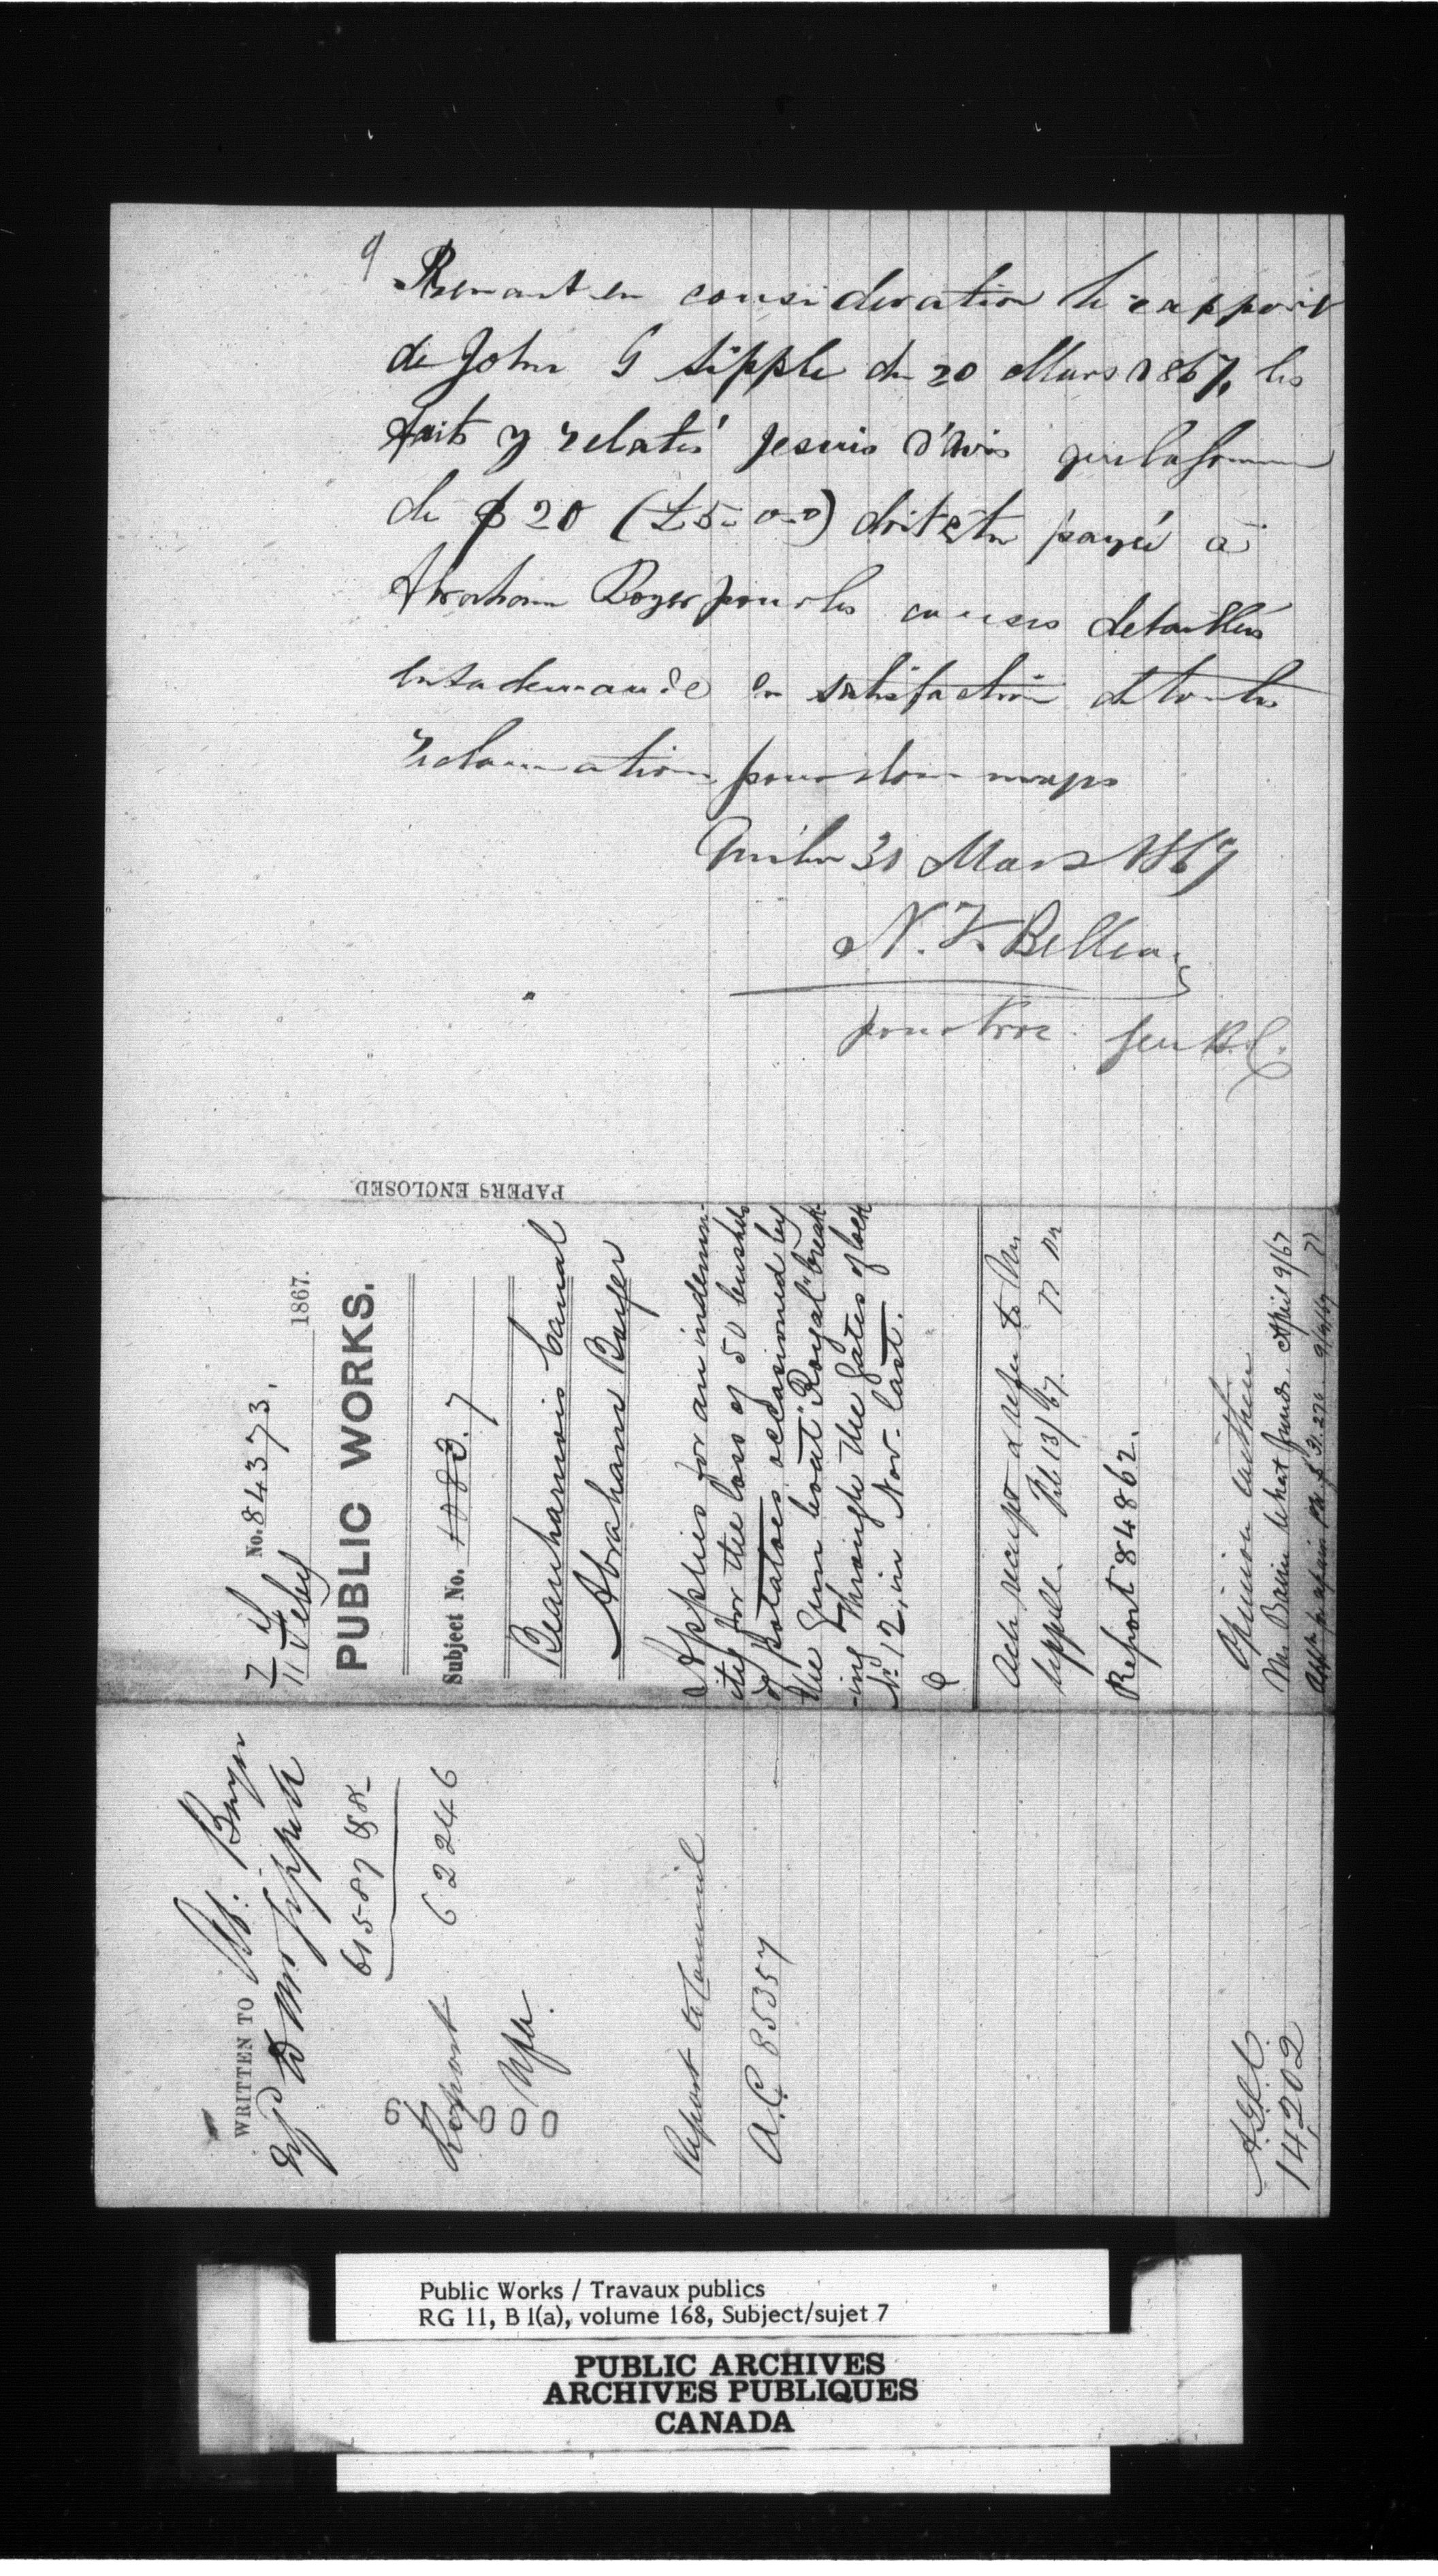 9
Prenant en consideration le rapport
de John G Sipple du 20 Mars 1867, les
faits y relatés je suis d'avis que la somme
de $20 (£5-0-0) doit etre payée à
Abraham Boyer pour les causes detaillées
en sa demande en satisfaction de toutes
reclamation pour dommages
Québec 30 Mars 1867
N. F. Belleau
pour Proc. Gen B.C.
PAPERS ENCLOSED
No. 84373. 1867.
7
11 Feby
PUBLIC WORKS.
Subject No. 1083. 7
Beauharnois Canal
Abraham Boyer
Applies for an indemn-
ity for the loss of 50 bushels
of potatoes occasioned by
the Gun boat "Royal" break
-ing through the gates of lock
No 12, in Nov. last.
Ack receipt & refer to Mr
Sippell. Feb 13/67.
Report 84862.
Opinion within
Mr Baine what funds April 9/67
WRITTEN TO Ab. Boyer
& Mr Sippell
61587 & 88
Report 62246
6 000
Report to Council
A.C. 85357
14,202
Public Works / Travaux publics
RG 11, B 1(a), volume 168, Subject/sujet 7
PUBLIC ARCHIVES
ARCHIVES PUBLIQUES
CANADA